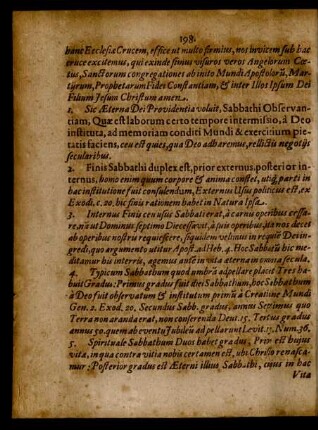 198.
hanc Ecclesiæ Crucem, effice ut multo firmius, nos brvicem sub hac
cruce excitemus, qui exinde simus visuros veros Angelorum Cœ-
tus, Sanctorum congregationes ab inito Mundi Apostolorũ, Mar-
tyrum, Prophetarum Fides Constantiam, & inter Illos Ipsum Dei
Filium Jesum Christum amen.
1. Sic Æterna Dei Providentia voluit, Sabbathi Observan-
tiam, Quæ est laborum certo tempore intermissio, à Deo
instituta, ad memoriam conditi Mundi & exercitium pie-
tatis faciens, ceu est quies, qua Deo adhæremus, relictis negotijs
secularibus.
2. Finis Sabbathi duplex est, prior externus, posterior in-
ternus, homo enim quum corpore & anima constet, utiq; parti in
hac institutione fuit consulendum, Externus Usus politicus est, ex
Exodi. c. 20. hic finis rationem habet in Natura Ipsa.
3. Internus Finis ceu usus Sabbati erat, à carnis operibus cessa-
re, nã ut Dominus septimo Die cessavit, à suis operibus, ita nos decet
ab operibus nostris requiescere, siquidem velimus in requiẽ Dei in-
gredi, quo argumento utitur Apost. ad Heb. 4. Hoc Sabatũ hic me-
ditamur hũ interris, agemus autẽ in vita æternain omnia secula,
4. Typicum Sabbathum quod umbrã adpellare placit Tres ha-
buit Gradus: Primus gradus fuit diei Sabbathum, hoc Sabbathum
à Deo fuit observatum & institutum primũ à Creatione Mundi
Gen. 2. Exod. 20. Secundus Sabb. gradus, annus Septimus quo
Terra non aranda erat, non conserenda Deut. 15. Tertus gradus
annus 50. quem ab eventu Jubileũ adpellarunt Levit. 17. Num. 36,
5. Spirituale Sabbathum Duos habet gradus, Prior est hujus
vita, in qua contra vitia nobis certamen est, ubi Christo renasca-
mur: Posterior gradus est Æterni illius Sabbathi, cujus in hac
Vita